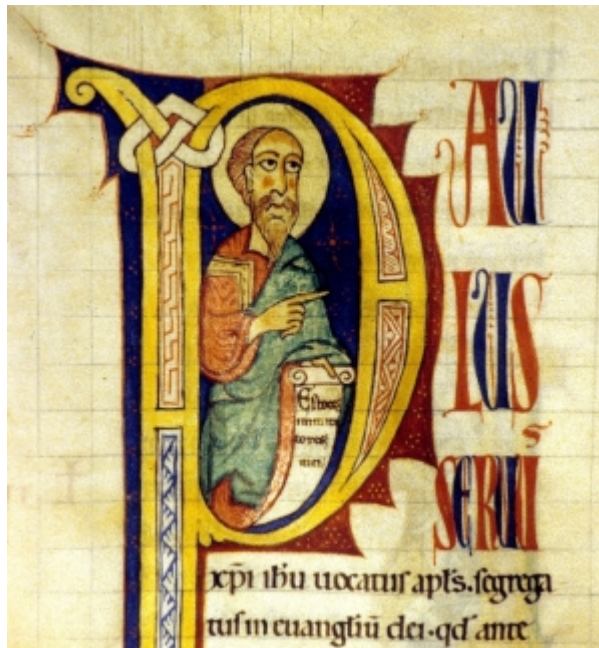 P
AU
LUS
SERUUS
Estote
mei
xp̄i ih̄u uocatus apl̄s. segrega
tus in euangl̄iū dei. qd̄ ante